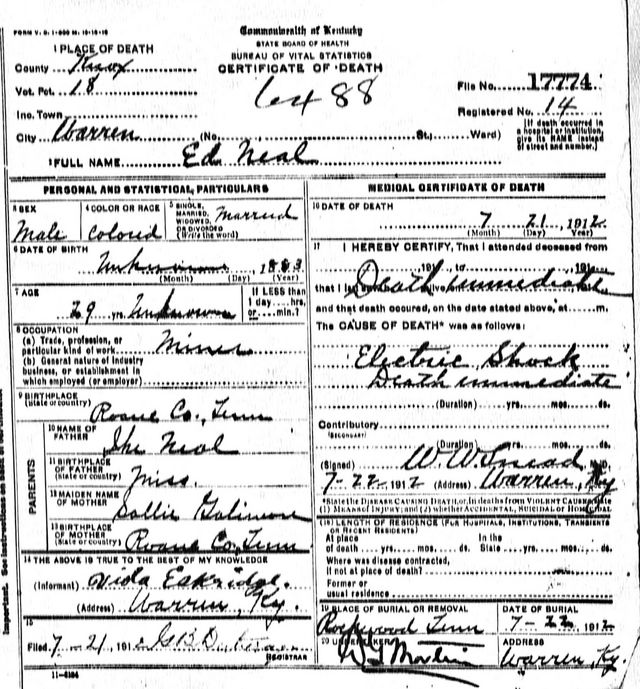 FORM V. S. 1-
Commonwealth of Kentucky
STATE BOARD OF HEALTH
BUREAU OF VITAL STATISTICS
CERTIFICATE OF DEATH
1 PLACE OF DEATH
County Knox
Vot. Pct. 18
Inc. Town
City Warren (No. St.; Ward)
6488
File No. 17774
Registered No. 14
[If death occurred in
a hospital or institution,
give its NAME instead
of street and number.]
2 FULL NAME Ed Neal
PERSONAL AND STATISTICAL PARTICULARS
3 SEX
Male
4 COLOR OR RACE
Colored
5 SINGLE,
MARRIED,
WIDOWED,
OR DIVORCED
(Write the word)
Married
6 DATE OF BIRTH
Unknown 1883
(Month) (Day) (Year)
7 AGE
29 yrs. Unknown
If LESS than
1 day....hrs.
or....min.?
8 OCCUPATION
(a) Trade, profession, or
particular kind of work Miner
(b) General nature of industry
business, or establishment in
which employed (or employer)
9 BIRTHPLACE
(State or country) Roane Co., Tenn
PARENTS
10 NAME OF
FATHER Ike Neal
11 BIRTHPLACE
OF FATHER
(State or country) Miss.
12 MAIDEN NAME
OF MOTHER Sallie
13 BIRTHPLACE
OF MOTHER
(State or country) Roane Co., Tenn
14 THE ABOVE IS TRUE TO THE BEST OF MY KNOWLEDGE
(Informant) Vida Eskridge.
(Address) Warren, Ky.
15
Filed 7-21, 1912
REGISTRAR
11-6184
MEDICAL CERTIFICATE OF DEATH
16 DATE OF DEATH
7 21, 1912
(Month) (Day) (Year)
17 I HEREBY CERTIFY, That I attended deceased from
191 to 191
that I last alive Death immediate
and that death occured, on the date stated above, at m.
The CAUSE OF DEATH* was as follows:
Electric Shock
Death immediate
(Duration) yrs. mos. ds.
Contributory
(SECONDARY)
(Duration) yrs. mos. ds.
(Signed) W. W. Snead, M.D.
7-22 1912 (Address) Warren, Ky
*State the DISEASE CAUSING DEATH, or, in deaths from VIOLENT CAUSES, state
(1) MEANS OF INJURY; and (2) whether ACCIDENTAL, SUICIDAL or HOMICIDAL
18 LENGTH OF RESIDENCE (FOR HOSPITALS, INSTITUTIONS, TRANSIENTS
OR RECENT RESIDENTS)
At place In the
of death yrs. mos. ds. State yrs. mos. ds.
Where was disease contracted,
if not at place of death?
Former or
usual residence
19 PLACE OF BURIAL OR REMOVAL
Rockwood Tenn
DATE OF BURIAL
7-22, 1912
20 UNDERTAKER
ADDRESS
Warren, Ky.
Important. See instructions on back of